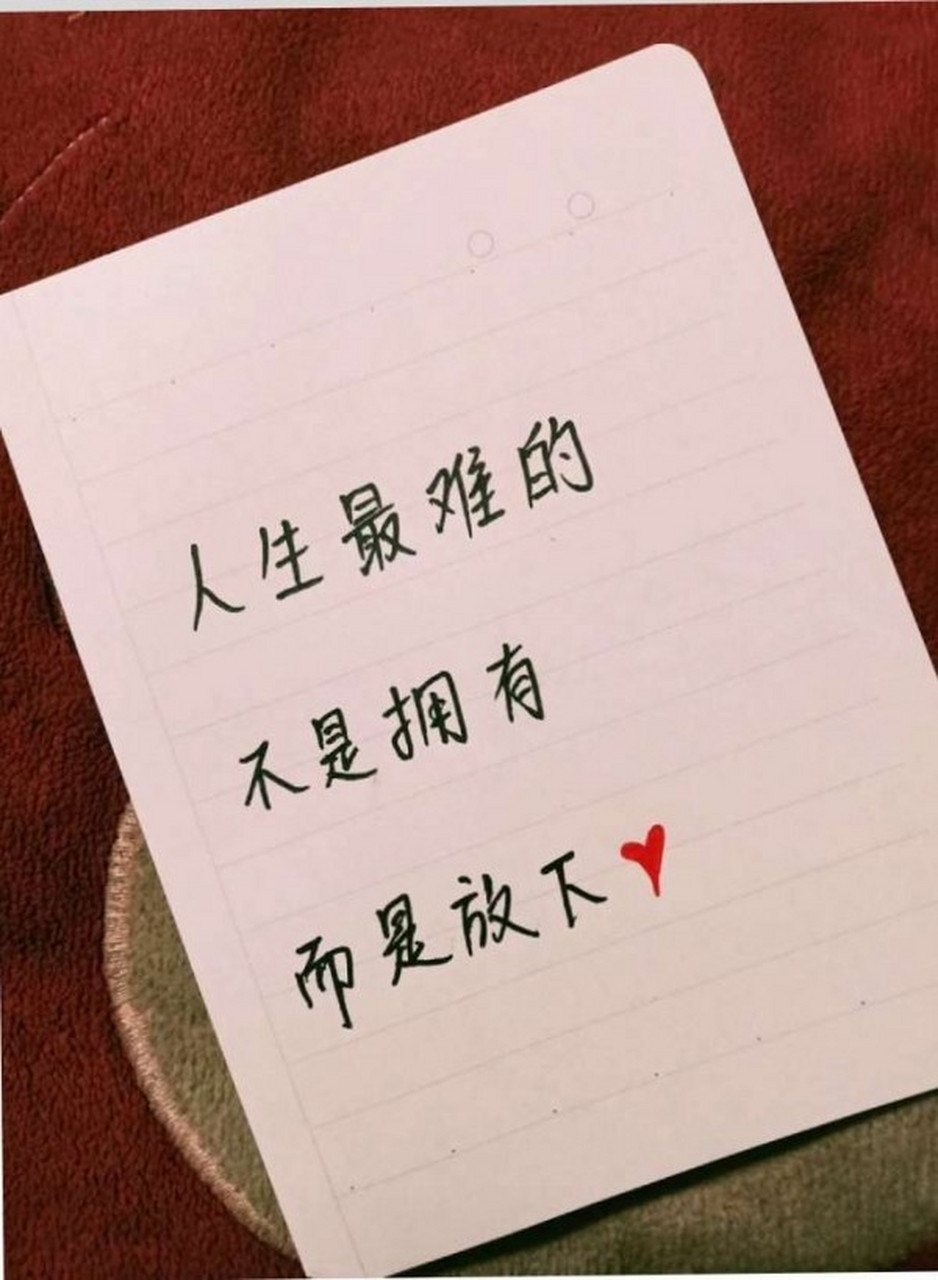 人生最难的
不是拥有
而是放下